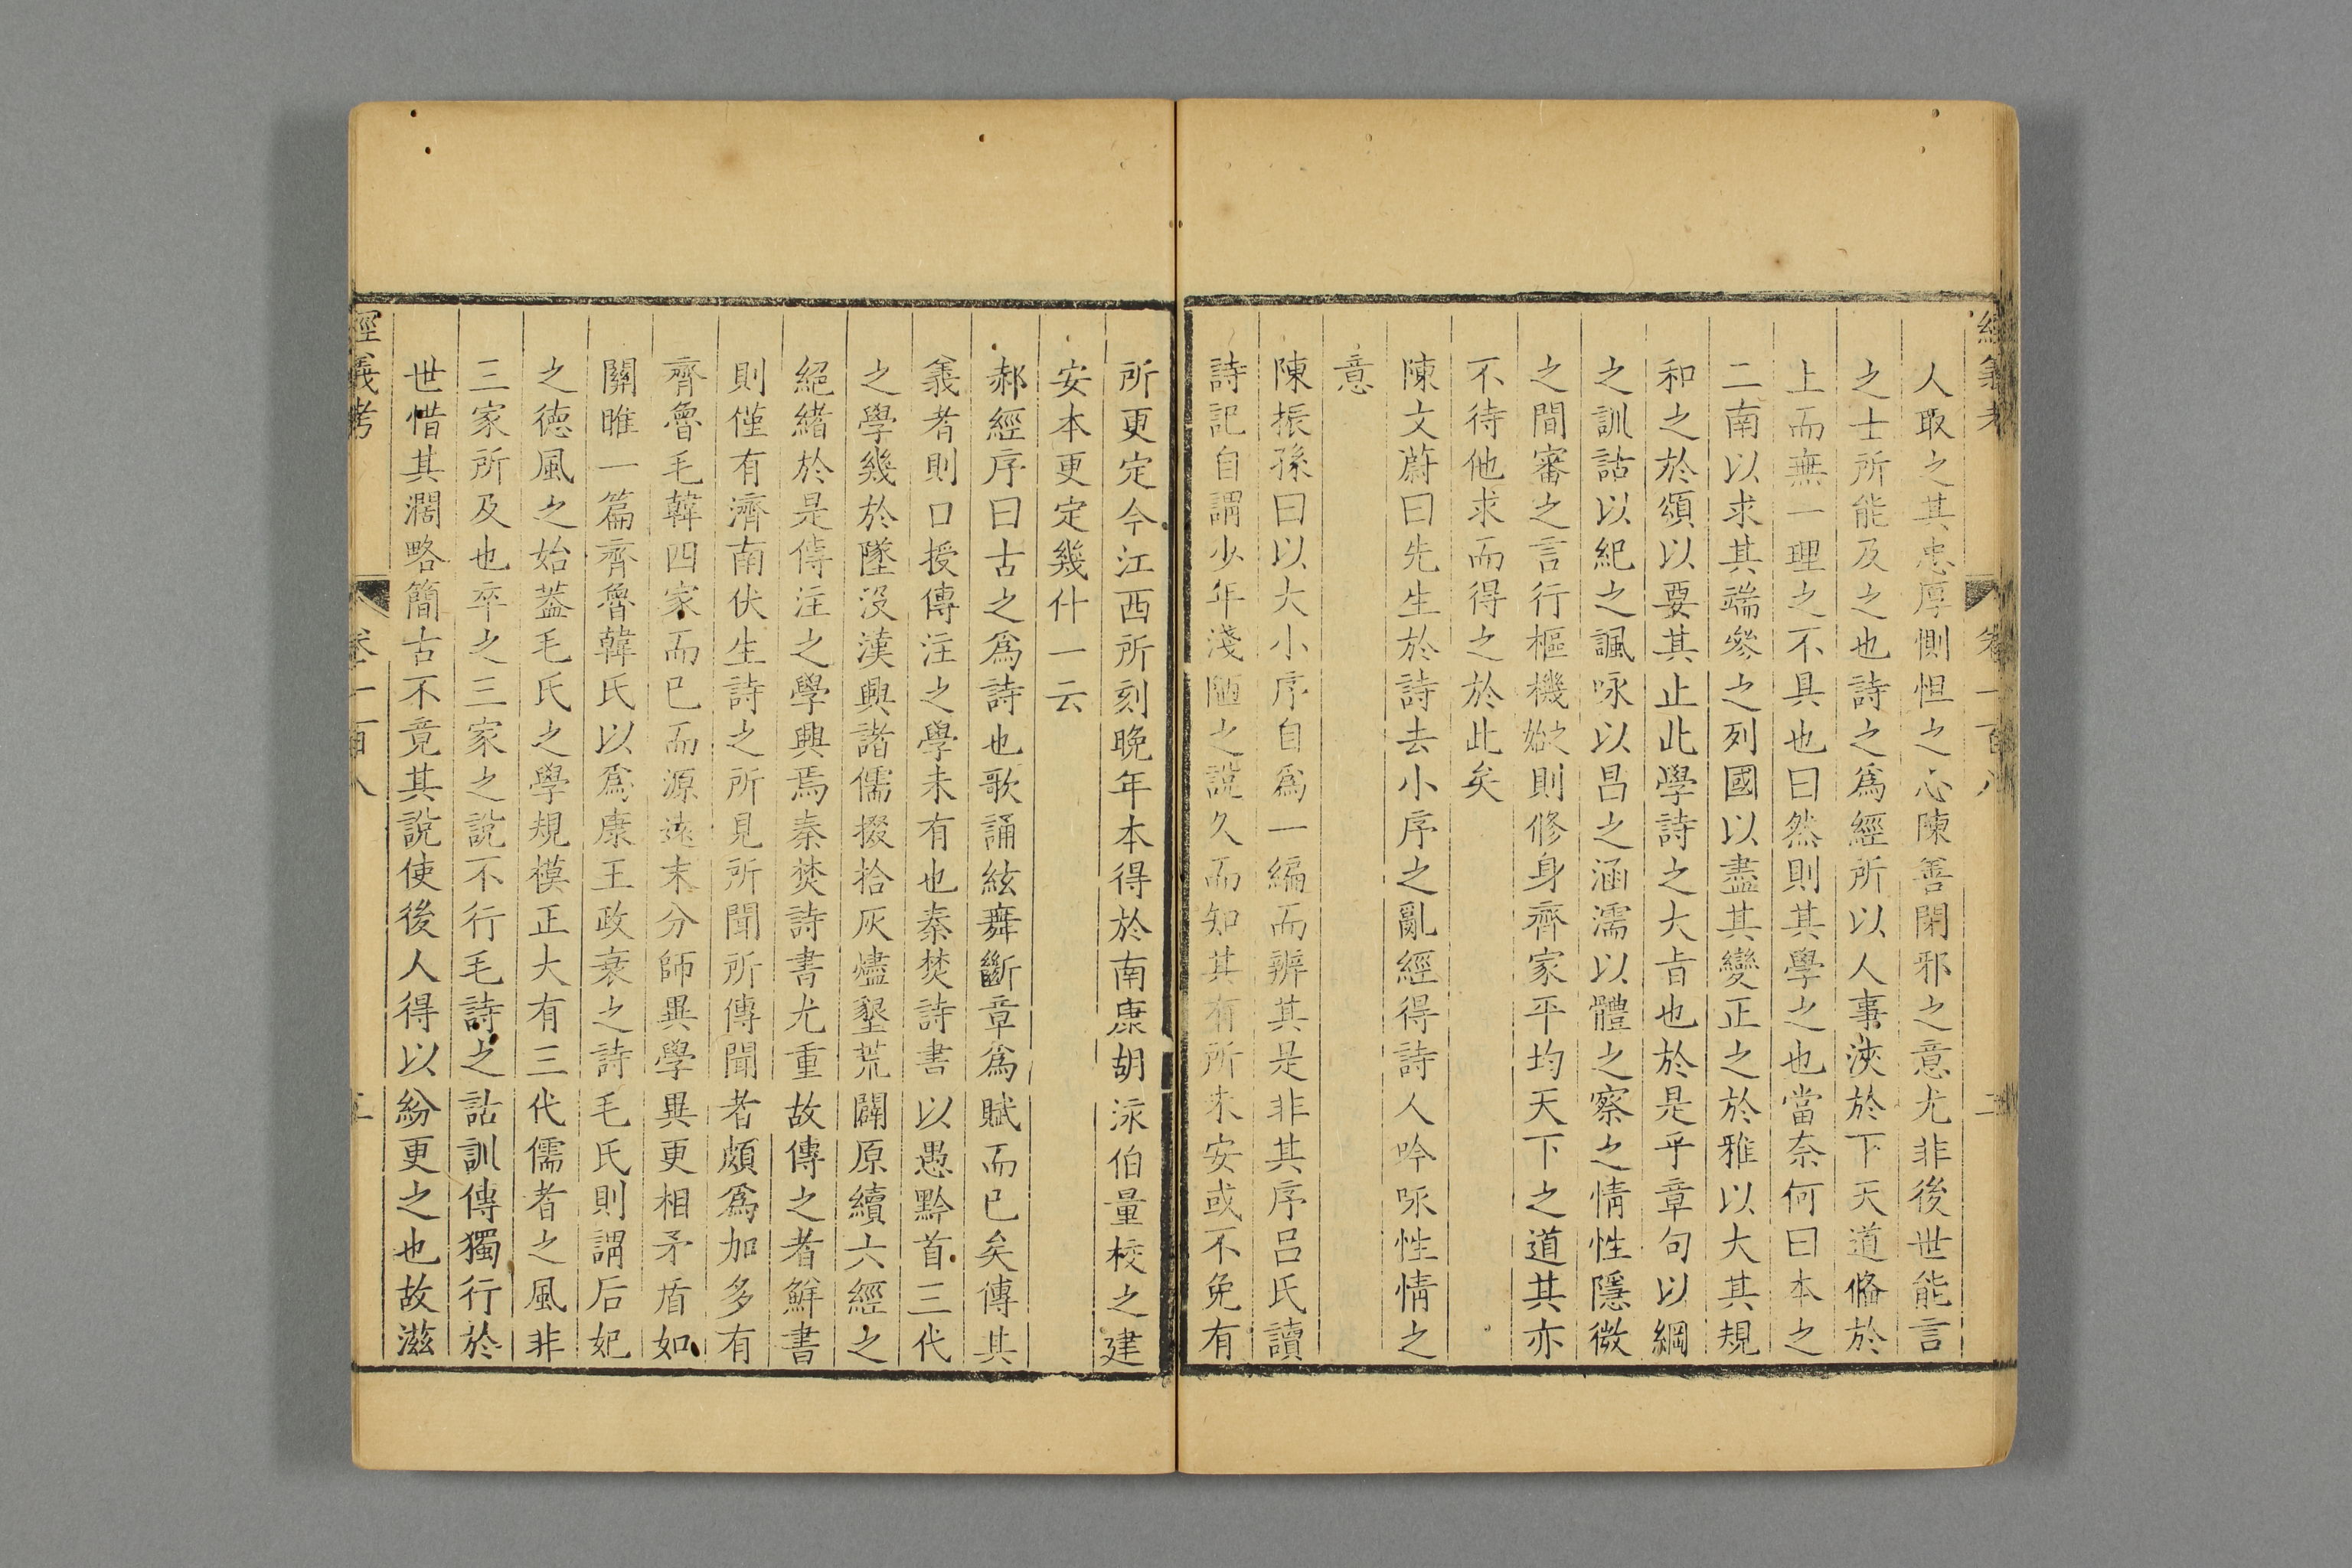 經義考 卷一百八 二
人取之其忠厚惻怛之心陳善閉邪之意尤非後世能言
之士所能及之也詩之爲經所以人事浹於下天道偹於
上而無一理之不具也曰然則其學之也當奈何曰本之
二南以求其端參之列國以盡其變正之於雅以大其規
和之於頌以要其止此學詩之大旨也於是乎章句以綱
之訓詁以紀之諷咏以昌之涵濡以體之察之情性隱微
之間審之言行樞機之始則修身齊家平均天下之道其亦
不待他求而得之於此矣
陳文蔚曰先生於詩去小序之亂經得詩人吟咏性情之
意
陳振孫曰以大小序自爲一編而辨其是非其序呂氏讀
詩記自謂少年淺陋之說久而知其有所未安或不免有
所更定今江西所刻晚年本得於南康胡泳伯量校之建
安本更定幾什一云
郝經序曰古之爲詩也歌誦絃舞斷章爲賦而已矣傳其
義者則口授傳注之學未有也秦焚詩書以愚黔首三代
之學幾於墜沒漢興諸儒掇拾灰燼墾荒闢原續六經之
絕緒於是傳注之學興焉秦焚詩書尤重故傳之者鮮書
則僅有濟南伏生詩之所見所聞所傳聞者頗爲加多有
齊魯毛韓四家而已而源遠末分師異學異更相矛盾如
關雎一篇齊魯韓氏以爲康王政衰之詩毛氏則謂后妃
之德風之始蓋毛氏之學規模正大有三代儒者之風非
三家所及也卒之三家之說不行毛詩之詁訓傳獨行於
世惜其濶略簡古不竟其說使後人得以紛更之也故滋
經義考 卷一百八